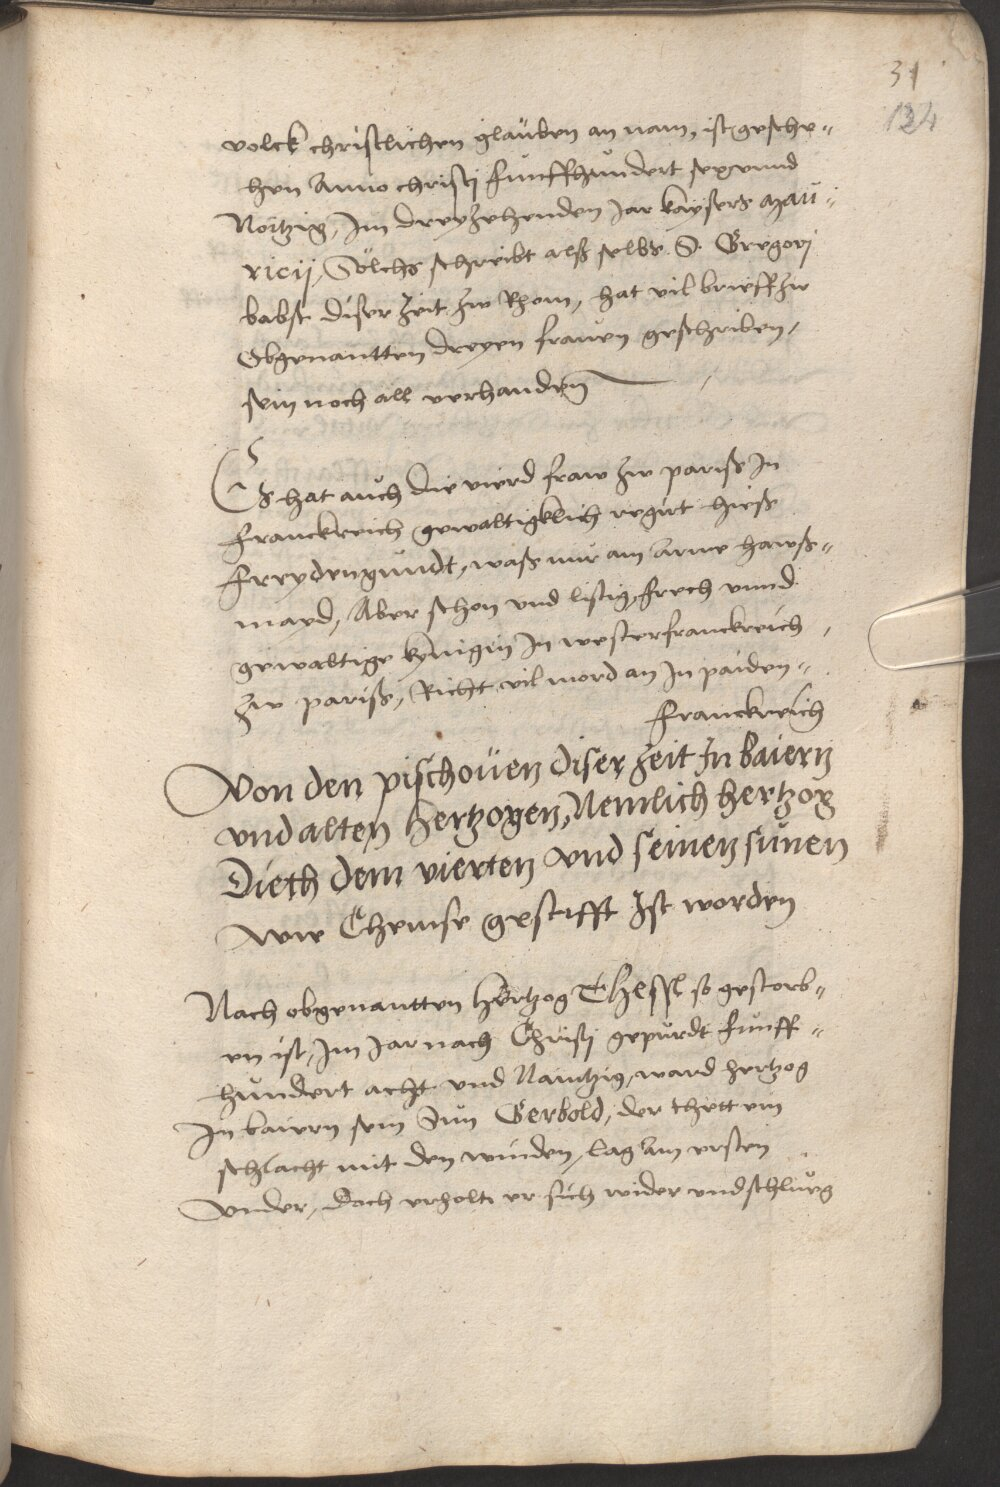 31
124
volck christlichen glauben an nam, ist gesche-
hen Anno christj funffhundert sex unnd
Nöitzig, Im dreyzehenden Jar kaysers Mau-
ricij, Sölchs schreibt alß selbs S. Gregorj
babst diser Zeit zw Rhom, hat vil brieff zw
Obgenantten dreyen frauen geschriben,
sein noch all verhanden
Es hat auch die vierd fraw zw pariss In
Franckreich gewaltigklich regirt hiess
Freydengundt, wass nur ain Arme hawss-
mayd, Aber schon vnd listig, frech vnnd
gewaltige kynigin In westerfranckreich,
zw pariss, Richt vil mord an In paiden-
Franckreich
Von den pischouen diser Zeit In baiern
vnd alten hertzogen, Nemlich hertzog
Dieth dem vierten vnd seinen sunen
Wie Chemse gestifft Ist worden
Nach obgenantten hertzog Thessl so gestorb-
en ist, Im Jar nach Christj gepurdt funff-
hundert acht vnd Naintzig, ward hertzog
In baiern sein Sun Gerbold, der thett ein
schlacht mit den winden, lag Am ersten
Vnder, Doch erholt er sich wider vnd schlueg